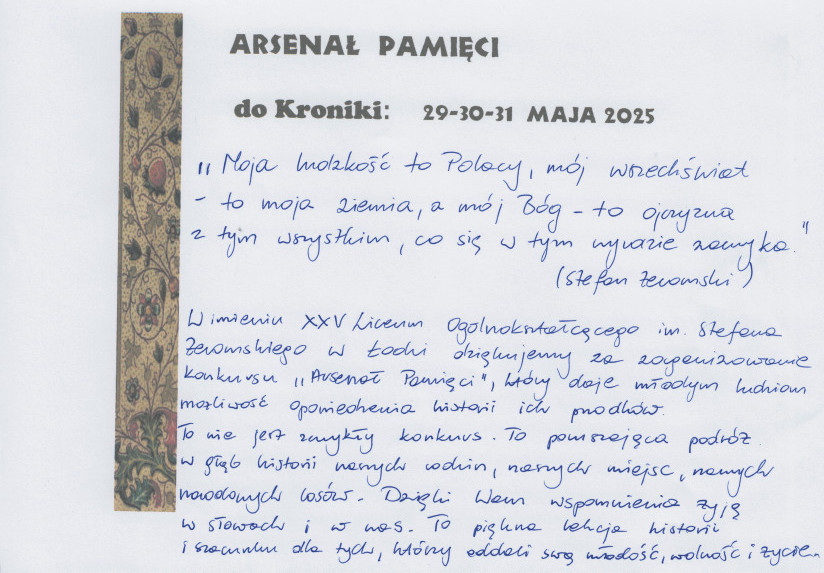 ARSENAŁ PAMIĘCI
do Kroniki: 29-30-31 MAJA 2025
„Moja ludzkość to Polacy, mój wszechświat
- to moja ziemia, a mój Bóg - to ojczyzna
z tym wszystkim, co się w tym wyrazie zamyka."
(Stefan Żeromski)
W imieniu XXV Liceum Ogólnokształcącego im. Stefana
Żeromskiego w Łodzi dziękujemy za zorganizowanie
konkursu „Arsenał Pamięci", który daje młodym ludziom
możliwość opowiedzenia historii ich przodków.
To nie jest zwykły konkurs. To poruszająca podróż
w głąb historii naszych rodzin, naszych miejsc, naszych
narodowych losów. Dzięki Wam wspomnienia żyją
w słowach i w nas. To piękna lekcja historii
i szacunku dla tych, którzy oddali swą młodość, wolność i życie.